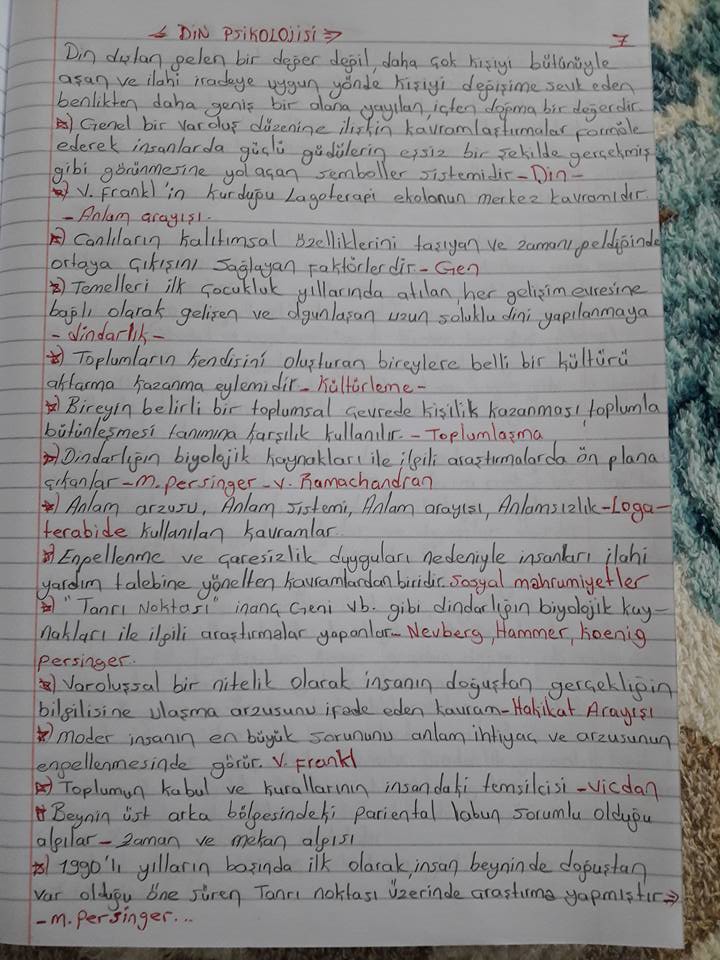 ← DİN PSİKOLOJİSİ → 7
Din dıştan gelen bir değer değil, daha çok kişiyi bütünüyle
aşan ve ilahi iradeye uygun yönde kişiyi değişime sevk eden
benlikten daha geniş bir alana yayılan, içten doğma bir değerdir.
*) Genel bir varoluş düzenine ilişkin kavramlaştırmalar formüle
ederek insanlarda güçlü güdülerin eşsiz bir şekilde gerçekmiş
gibi görünmesine yol açan semboller sistemidir - Din -
*) V. Frankl'in kurduğu Lagoterapi ekolonun merkez kavramıdır.
- Anlam arayışı.
*) Canlıların kalıtımsal özelliklerini taşıyan ve zamanı geldiğinde
ortaya çıkışını sağlayan faktörlerdir - Gen
*) Temelleri ilk çocukluk yıllarında atılan, her gelişim evresine
bağlı olarak gelişen ve olgunlaşan uzun soluklu dini yapılanmaya
- dindarlık -
*) Toplumların kendisini oluşturan bireylere belli bir kültürü
aktarma kazanma eylemidir - Kültürleme -
*) Bireyin belirli bir toplumsal çevrede kişilik kazanması, toplumla
bütünleşmesi tanımına karşılık kullanılır. - Toplumlaşma
*) Dindarlığın biyolojik kaynakları ile ilgili araştırmalarda ön plana
çıkanlar - M. Persinger - V. Ramachandran
*) Anlam arzusu, Anlam sistemi, Anlam arayışı, Anlamsızlık - Loga-
terabide kullanılan kavramlar.
*) Enpellenme ve çaresizlik duyguları nedeniyle insanları ilahi
yardım talebine yönelten kavramlardan biridir. Sosyal mahrumiyetler
*) "Tanrı Noktası" inanç Geni vb. gibi dindarlığın biyolojik kay-
nakları ile ilgili araştırmalar yapanlar - Nevberg, Hammer, Koenig
Persinger.
*) Varoluşsal bir nitelik olarak insanın doğuştan gerçekliğin
bilgilisine ulaşma arzusunu ifade eden kavram - Hakikat Arayışı
*) Moder insanın en büyük sorununu anlam ihtiyaç ve arzusunun
engellenmesinde görür. V. Frankl
*) Toplumun kabul ve kurallarının insandaki temsilcisi - Vicdan
* Beynin üst arka bölgesindeki pariental lobun sorumlu olduğu
algılar - Zaman ve mekan algısı
*) 1990'lı yılların başında ilk olarak, insan beyninde doğuştan
var olduğu öne süren Tanrı noktası üzerinde araştırma yapmıştır →
- M. Persinger...